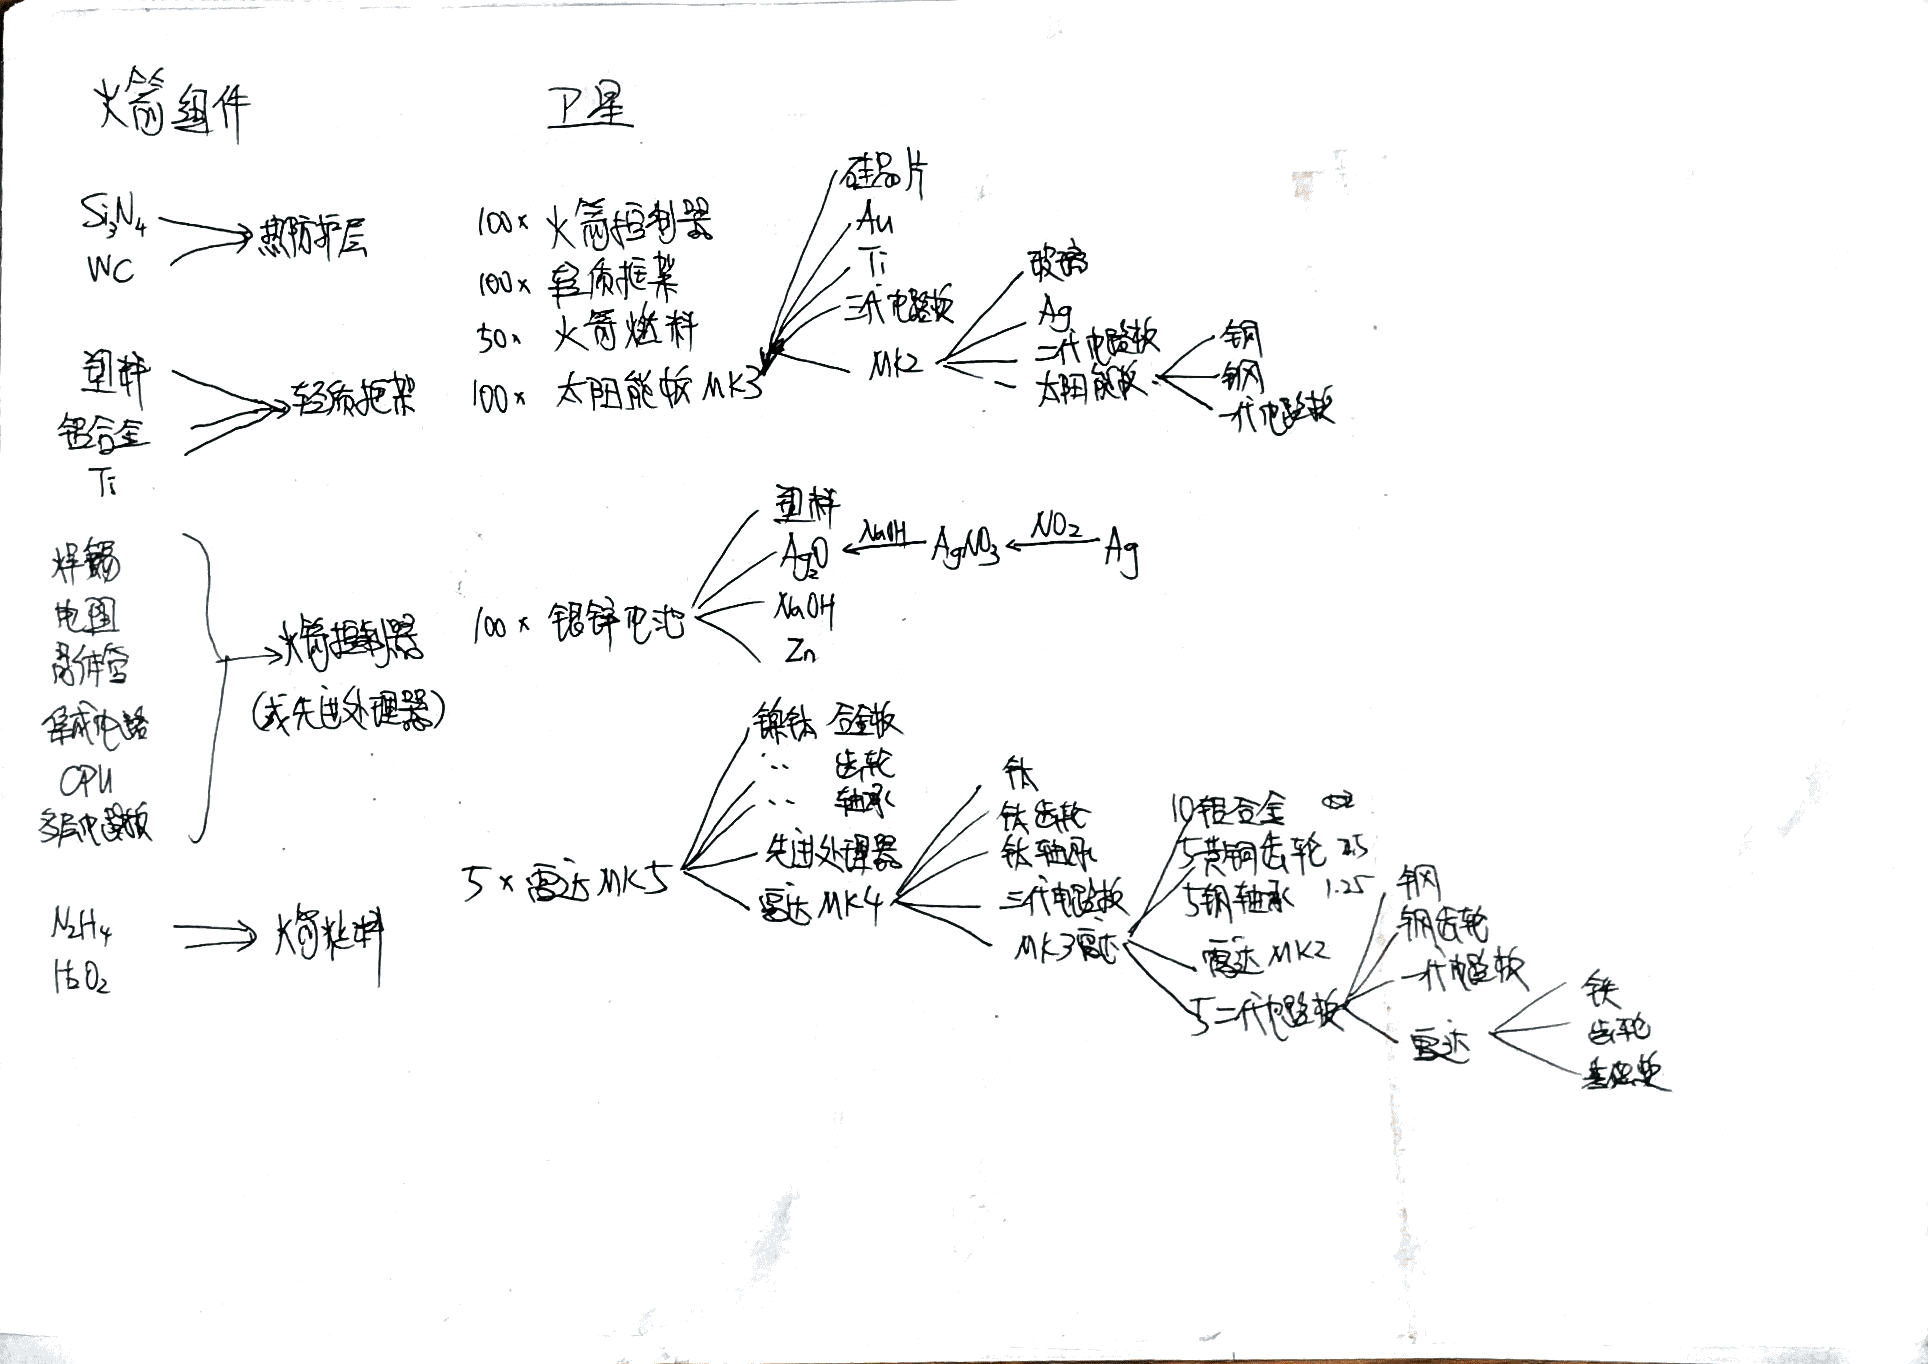 火箭组件
Si3N4
WC
热防护层
塑料
铝合金
Ti
轻质框架
焊锡
电阻
晶体管
集成电路
CPU
多层电路板
火箭控制器
(或先进处理器)
N2H4
H2O2
火箭燃料
卫星
100× 火箭控制器
100× 轻质框架
50× 火箭燃料
100× 太阳能板MK3
硅晶片
Au
Ti
三代电路板
MK2
玻璃
Ag
二代电路板
太阳能板
铜
钢
一代电路板
100× 银锌电池
塑料
Ag2O NaOH AgNO3 NO2 Ag
NaOH
Zn
5× 雷达MK5
镍钛 合金板
‥ 齿轮
‥ 轴承
先进处理器
雷达MK4
钛
钛齿轮
钛轴承
三代电路板
MK3雷达
10铝合金
5黄铜齿轮 2.5
5钢轴承 1.25
雷达MK2
5二代电路板
钢
钢齿轮
一代电路板
雷达
铁
齿轮